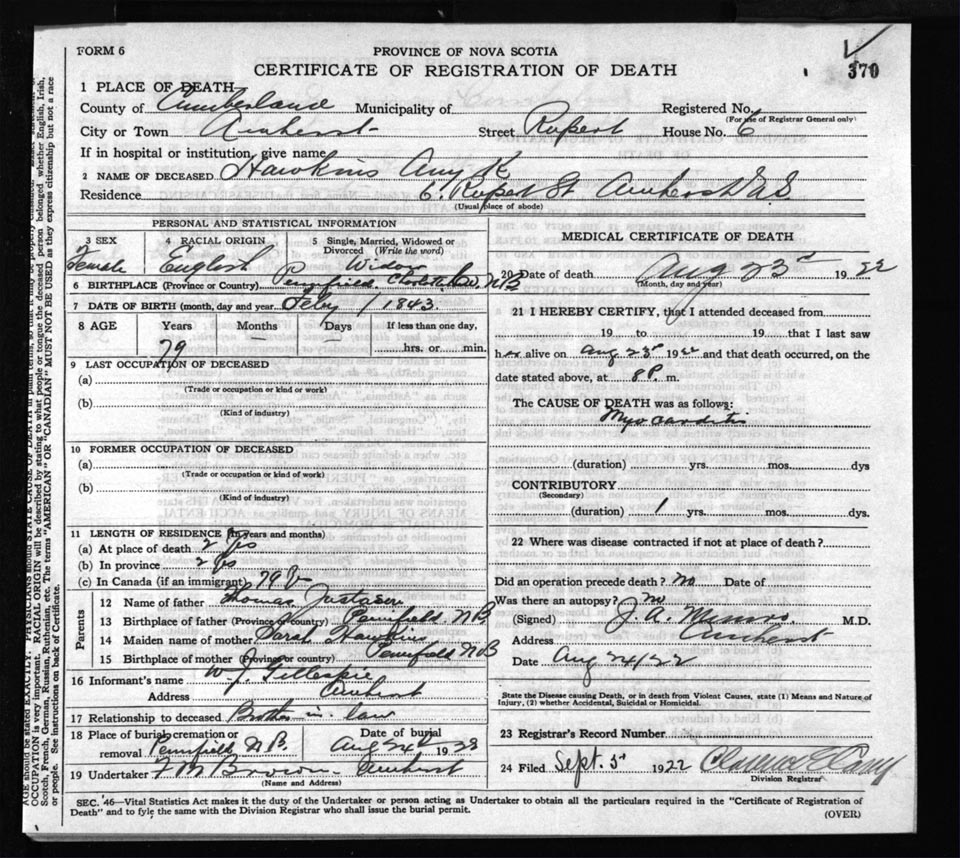 FORM 6
PROVINCE OF NOVA SCOTIA
CERTIFICATE OF REGISTRATION OF DEATH
370
1 PLACE OF DEATH
County of Cumberland Municipality of Registered No.
(For use of Registrar General only)
City or Town Amherst Street Rupert House No. 6
If in hospital or institution, give name
2 NAME OF DECEASED Hawkins Amy K
Residence 6 Rupert St Amherst N.S.
(Usual place of abode)
PERSONAL AND STATISTICAL INFORMATION
3 SEX 4 RACIAL ORIGIN 5 Single, Married, Widowed or Divorced (Write the word)
Female English Widow
6 BIRTHPLACE (Province or Country) Pennfield Charlotte Co. NB
7 DATE OF BIRTH (month, day and year) Feby 1 1843.
8 AGE Years Months Days If less than one day,
79 hrs. or min.
9 LAST OCCUPATION OF DECEASED
(a)
(Trade or occupation or kind or work)
(b)
(Kind of industry)
10 FORMER OCCUPATION OF DECEASED
(a)
(Trade or occupation or kind of work)
(b)
(Kind of industry)
11 LENGTH OF RESIDENCE (In years and months)
(a) At place of death 2 yrs
(b) In province 2 yrs
(c) In Canada (if an immigrant) 79 yr
Parents
12 Name of father Thomas Justason
13 Birthplace of father (Province or country) Pennfield N.B.
14 Maiden name of mother Sarah Hawkins
15 Birthplace of mother (Province or country) Pennfield NB
16 Informant's name W. J. Gillespie
Address Amherst
17 Relationship to deceased Brother in law
18 Place of burial, cremation or Date of burial
removal Pennfield N.B. Aug 24th 1922
19 Undertaker F. B. Amherst
(Name and Address)
MEDICAL CERTIFICATE OF DEATH
20 Date of death Aug 23rd 1922
(Month, day and year)
21 I HEREBY CERTIFY, that I attended deceased from
19 to 19 that I last saw
her alive on Aug 23rd 1922 and that death occurred, on the
date stated above, at 8 P. m.
The CAUSE OF DEATH was as follows:
Myocarditis
(duration) yrs. mos. dys
CONTRIBUTORY
(Secondary)
(duration) 1 yrs. mos. dys.
22 Where was disease contracted if not at place of death?
Did an operation precede death? no Date of
Was there an autopsy? no
(Signed) J. A. Munro M.D.
Address Amherst
Date Aug 24/22
State the Disease causing Death, or in death from Violent Causes, state (1) Means and Nature of
Injury, (2) whether Accidental, Suicidal or Homicidal.
23 Registrar's Record Number
24 Filed Sept. 5th 1922 Clarence E
Division Registrar
SEC. 46—Vital Statistics Act makes it the duty of the Undertaker or person acting as Undertaker to obtain all the particulars required in the "Certificate of Registration of
Death" and to fyle the same with the Division Registrar who shall issue the burial permit.
(OVER)
OCCUPATION is very important. RACIAL ORIGIN will be described by stating to what people or tongue the deceased person belonged, whether English, Irish,
Scotch, French, German, Russian, Ruthenian, etc. The terms "AMERICAN" OR "CANADIAN" MUST NOT BE USED as they express citizenship but not a race
or people. See instructions on back of Certificate.